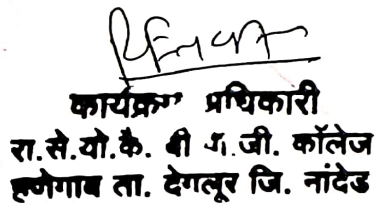 कार्यक्रम प्रधिकारी
रा.से.यो.कै. जी. कॉलेज
हणेगाव ता. देगलूर जि. नांदेड